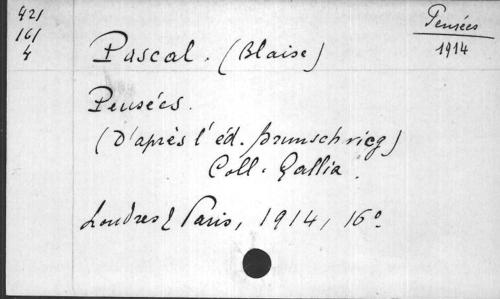 421
161
4
Pensées
1914
Pascal. (Blaise)
Pensées.
(D'après l'éd. Brunschvicg)
Coll. Gallia.
Londres & Paris, 1914, 16º